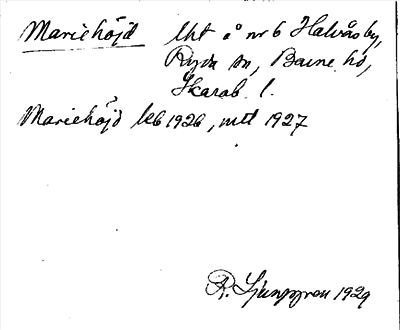 Mariehöjd lht å nr 6 Halvåsby,
Ryda sn, Barne hd,
Skarab. l.
Mariehöjd kb 1926, mtl 1927
R. Ljunggren 1929